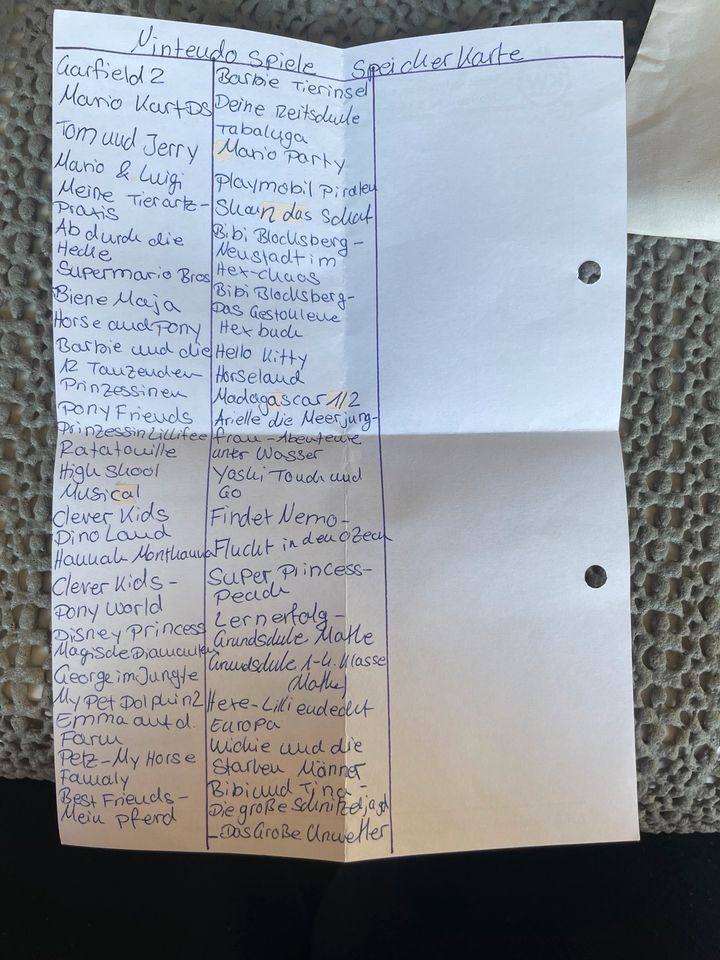 Nintendo Spiele Speicherkarte
Garfield 2
Mario Kart DS
Tom und Jerry
Mario & Luigi
Meine Tierartz-
Praxis
Ab durch die
Hecke
Supermario Bros
Biene Maja
Horse and Pony
Barbie und die
12 Tanzenden
Prinzessinen
Pony Friends
Prinzessin Lillifee
Ratatouille
High Skool
Musical
Clever Kids
Dino Land
Hannah Monthanna
Clever Kids-
Pony World
Disney Princess
Magische Diamanten
George im Jungle
My Pet Dolphin 2
Emma auf d.
Farm
Petz-My Horse
Famaly
Best Friends-
Mein Pferd
Barbie Tierinsel
Deine Reitschule
Tabaluga
Mario Party
Playmobil Piraten
Shaun das Schaf
Bibi Blocksberg-
Neustadt im
Hex-chaos
Bibi Blocksberg-
Das Gestohlene
Hexbuch
Hello Kitty
Horseland
Madagascar 1/2
Arielle die Meerjung-
frau-Abenteuer
unter Wasser
Yoshi Touch und
Go
Findet Nemo-
Flucht in den Ozean
Super Princess-
Peach
Lernerfolg-
Grundschule Mathe
Grundschule 1-4. Klasse
(Mathe)
Hexe-Lilli endeckt
Europa
Wickie und die
Starken Männer
Bibi und Tina-
Die große Schnitzeljagd
-Das Große Unwetter